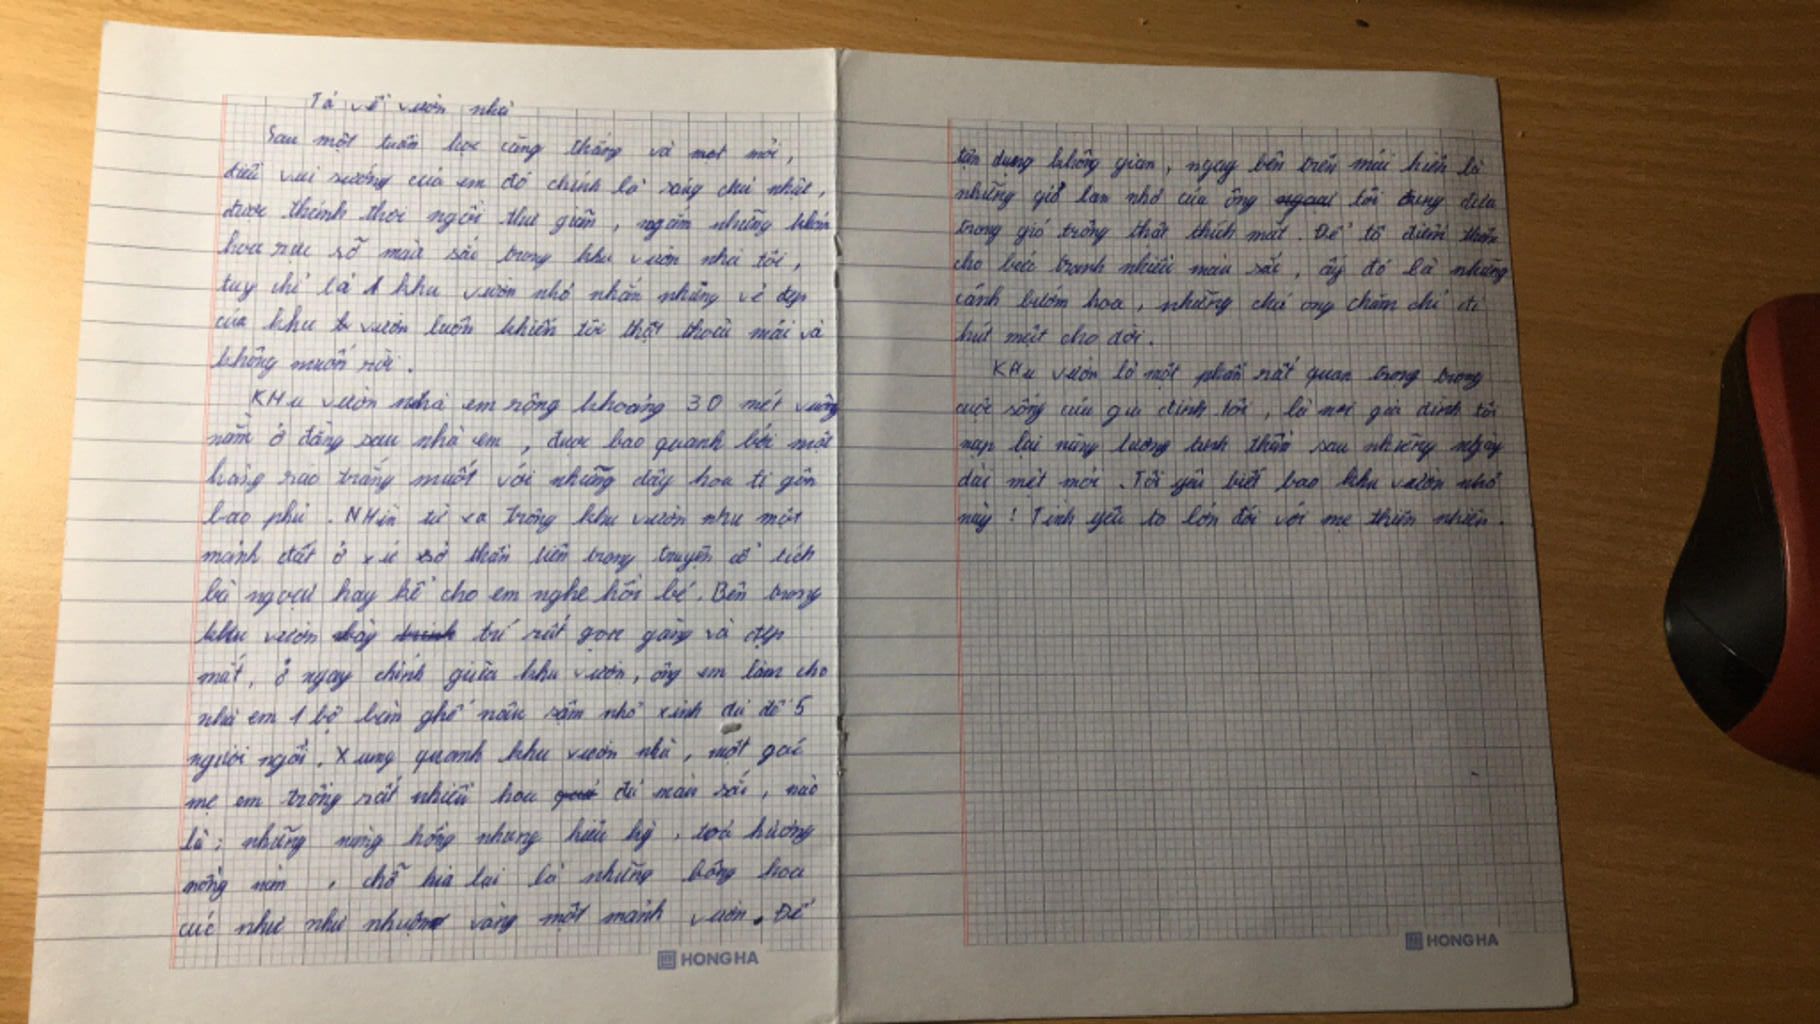 Tả về vườn nhà
Sau một tuần học căng thẳng và mệt mỏi,
điều vui sướng của em đó chính là sáng chủ nhật,
được thảnh thơi ngồi thư giãn, ngắm những khóm
hoa rực rỡ màu sắc trong khu vườn nhà tôi,
tuy chỉ là 1 khu vườn nhỏ nhắn nhưng vẻ đẹp
của khu vườn luôn khiến tôi thật thoải mái và
không muốn rời.
KHu vườn nhà em rộng khoảng 30 mét vuông
nằm ở đằng sau nhà em, được bao quanh bởi một
hàng rào trắng muốt với những dây hoa ti gôn
bao phủ. NHìn từ xa trông khu vườn như một
mảnh đất ở xứ sở thần tiên trong truyện cổ tích
bà ngoại hay kể cho em nghe hồi bé. Bên trong
khu vườn bày trí rất gọn gàng và đẹp
mắt, ở ngay chính giữa khu vườn, ông em làm cho
nhà em 1 bộ bàn ghế nâu sậm nhỏ xinh đủ để 5
người ngồi. Xung quanh khu vườn nhà, một góc
mẹ em trồng rất nhiều hoa đủ màu sắc, nào
là: những nàng hồng nhung kiêu kỳ, toả hương
nồng nàn, chỗ kia lại là những bông hoa
cúc như như nhuộm vàng một mảnh vườn. Để
tận dụng không gian, ngay bên trên mái hiên là
những giỏ lan nhỏ của ông ngoại tôi đung đưa
trong gió trông thật thích mắt. Để tô điểm thêm
cho bức tranh nhiều màu sắc, ấy đó là những
cánh bướm hoa, những chú ong chăm chỉ đi
hút mật cho đời.
KHu vườn là một phần rất quan trọng trong
cuộc sống của gia đình tôi, là nơi gia đình tôi
nạp lại năng lượng tinh thần sau những ngày
dài mệt mỏi. Tôi yêu biết bao khu vườn nhỏ
này! Tình yêu to lớn đối với mẹ thiên nhiên.
HONG HA
HONG HA